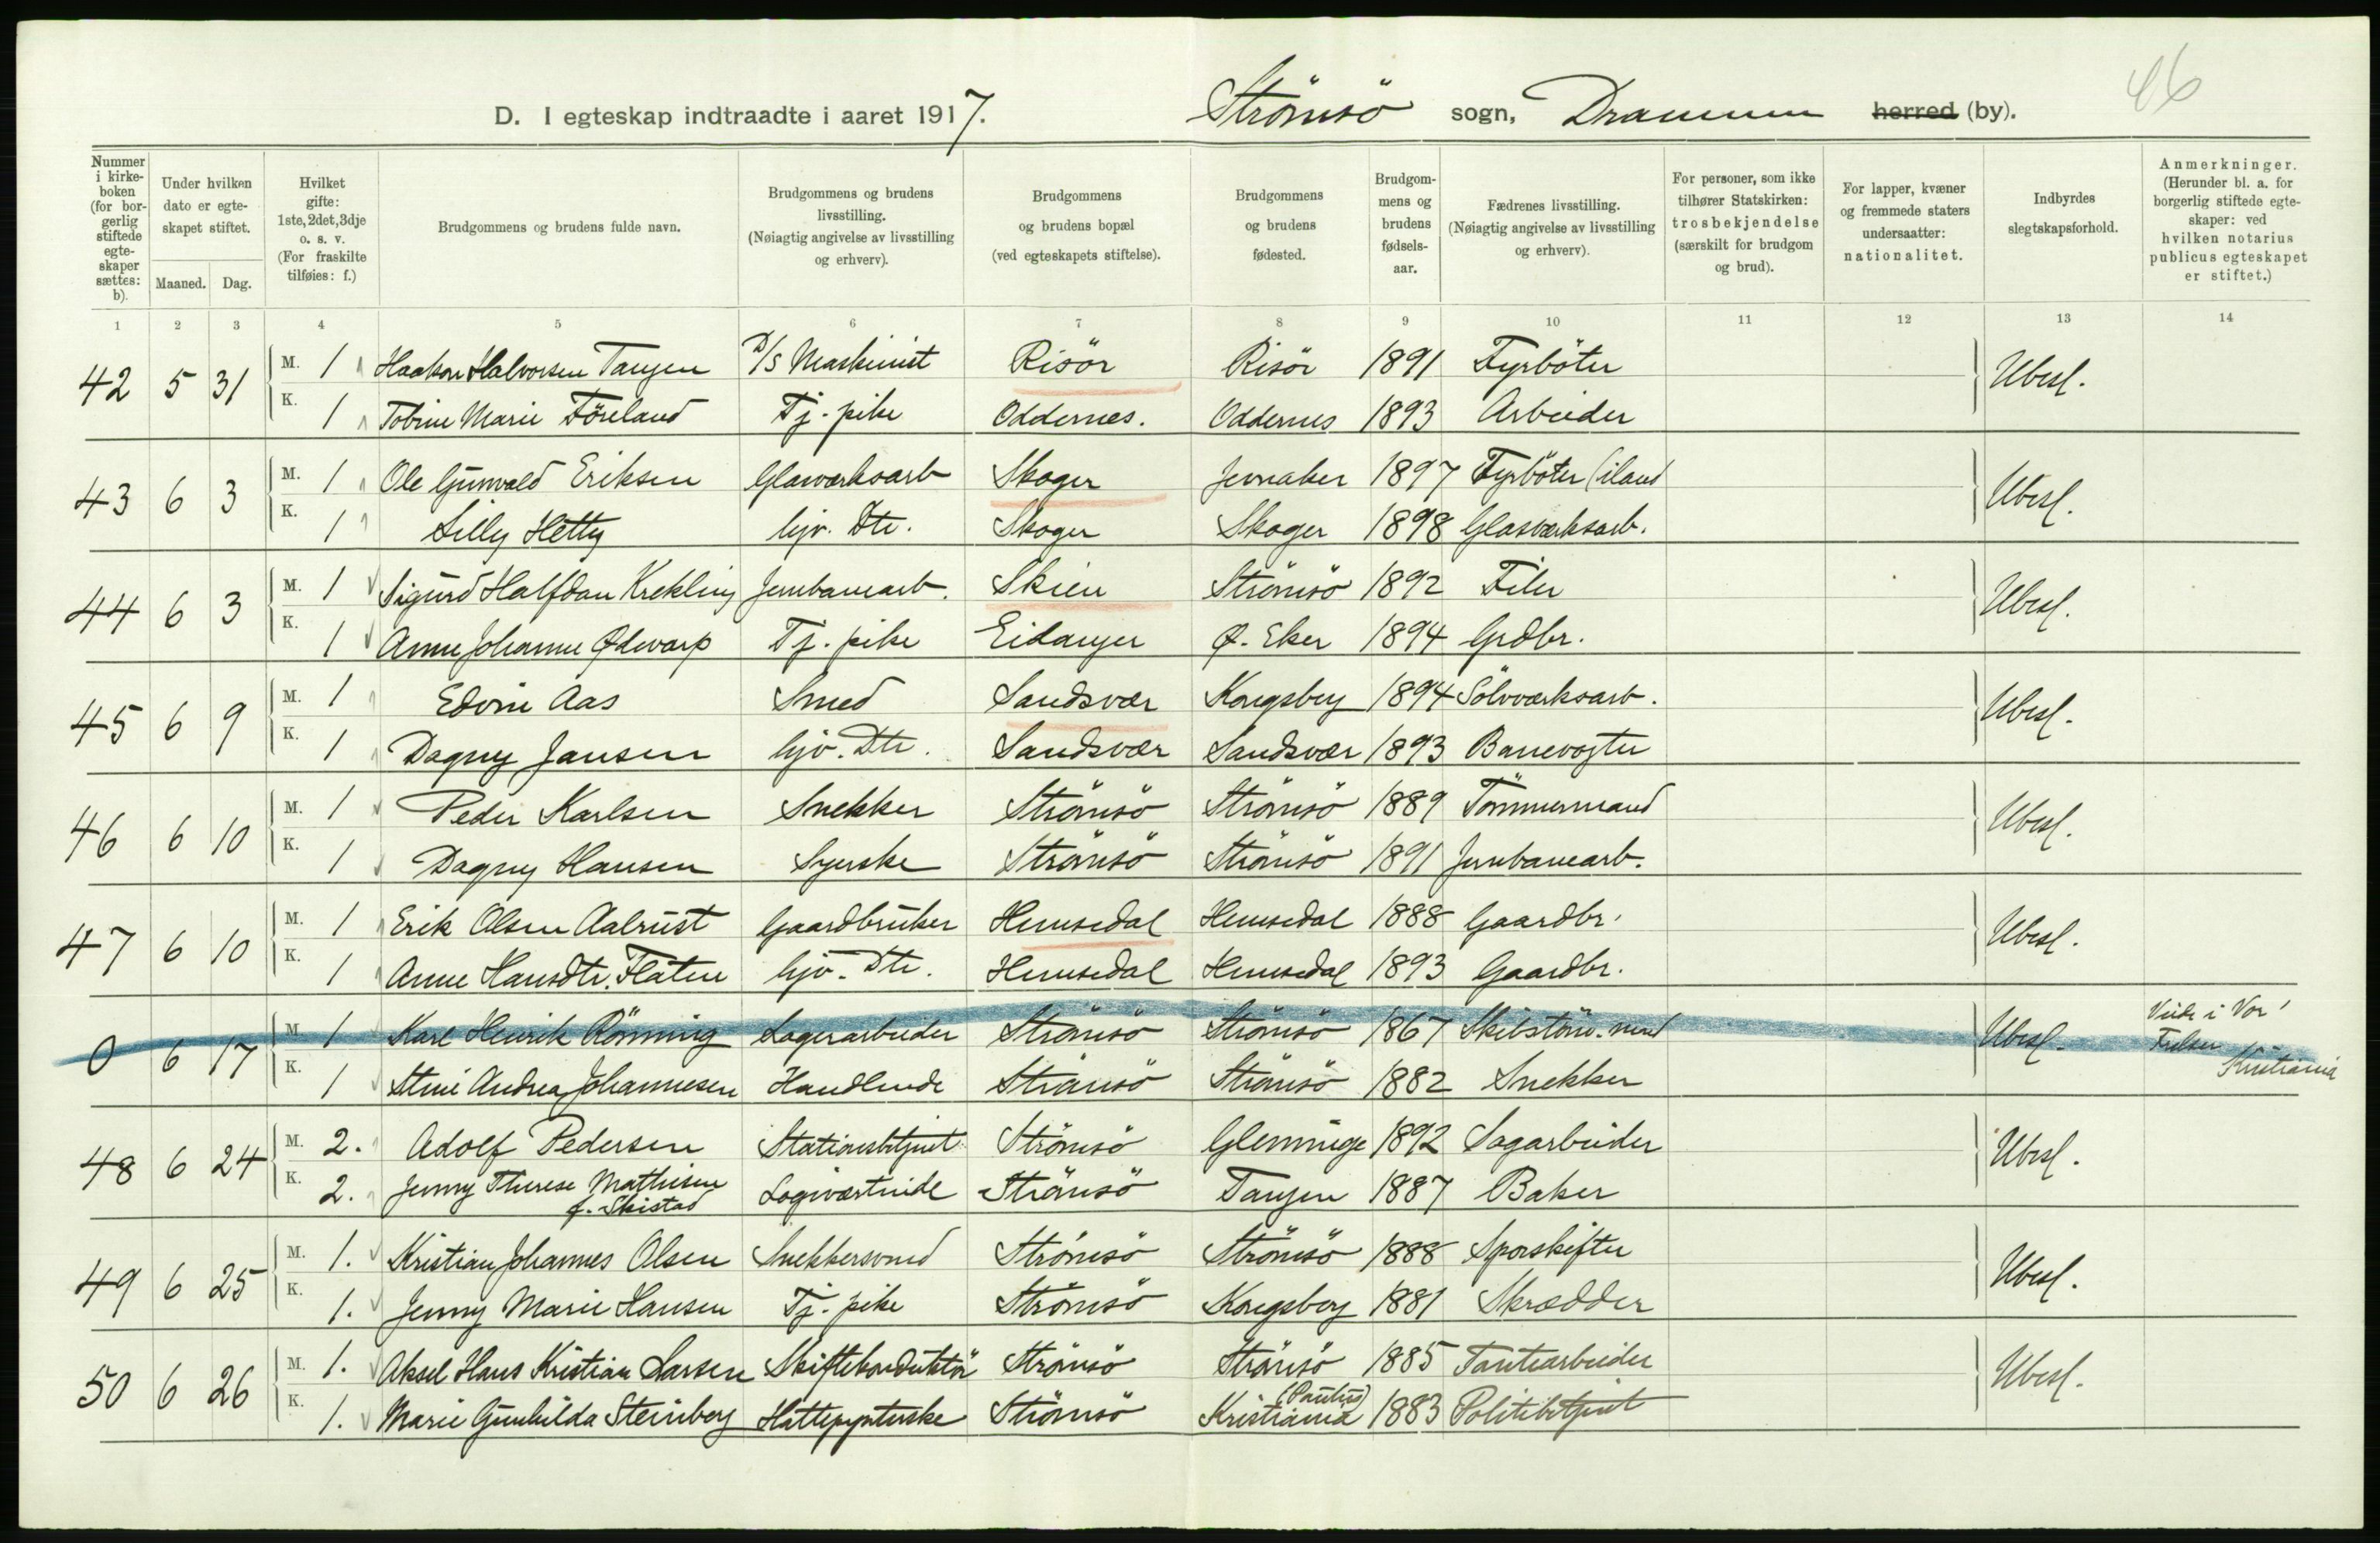 46
D. I egteskap indtraadte i aaret 1917. Strömsö sogn, Drammen herred (by).
Nummer i kirkeboken (for borgerlig stiftede egteskaper sættes: b).
Under hvilken dato er egteskapet stiftet.
Maaned. Dag.
Hvilket gifte: 1ste, 2det, 3dje o. s. v. (For fraskilte tilføies: f.)
Brudgommens og brudens fulde navn.
Brudgommens og brudens livsstilling. (Nøiagtig angivelse av livsstilling og erhverv).
Brudgommens og brudens bopæl (ved egteskapets stiftelse).
Brudgommens og brudens fødested.
Brudgommens og brudens fødselsaar.
Fædrenes livsstilling. (Nøiagtig angivelse av livsstilling og erhverv).
For personer, som ikke tilhører Statskirken: trosbekjendelse (særskilt for brudgom og brud).
For lapper, kvæner og fremmede staters undersaatter: nationalitet.
Indbyrdes slegtskapsforhold.
Anmerkninger. (Herunder bl. a. for borgerlig stiftede egteskaper: ved hvilken notarius publicus egteskapet er stiftet.)
1 2 3 4 5 6 7 8 9 10 11 12 13 14
42 5 31 M. 1 Haakon Halvorsen Tangen D/S Maskinist Risör Risör 1891 Fyrböter Ubesl.
K. 1 Tobine Marie Föreland Tj. pike Oddernes. Oddernes 1893 Arbeider
43 6 3 M. 1 Ole Gunvald Eriksen Glasværksarb Skoger Jevnaker 1897 Fyrböter (iland Ubesl.
K. 1 Lilly Hetty hjv. Dtr. Skoger Skoger 1898 Glasværksarb.
44 6 3 M. 1 Sigurd Halfdan Krekling Jernbanearb. Skien Strömsö 1892 Filer Ubesl.
K. 1 Anne Johanne Ødevarp Tj. pike Eidanger Ø. Eker 1894 Grdbr.
45 6 9 M. 1 Edvin Aas Smed Sandsvær Kongsberg 1894 Sölvværksarb. Ubesl.
K. 1 Dagny Jansen hjv. Dtr. Sandsvær Sandsvær 1893 Banevogter
46 6 10 M. 1 Peder Karlsen Snekker Strömsö Strömsö 1889 Tömmermand Ubesl.
K. 1 Dagny Hansen Syerske Strömsö Strömsö 1891 Jernbanearb.
47 6 10 M. 1 Erik Olsen Aalrust Gaardbruker Hemsedal Hemsedal 1888 Gaardbr. Ubesl.
K. 1 Anne Hansdtr. Flaten hjv. Dtr. Hemsedal Hemsedal 1893 Gaardbr.
0 6 17 M. 1 Karl Henrik Rönning Lagerarbeider Strömsö Strömsö 1867 Skibstöm.mand Ubesl. Viede i Vor Frelser Kristiania
K. 1 Stine Andrea Johannesen Handlende Strömsö Strömsö 1882 Snekker
48 6 24 M. 2. Adolf Pedersen Stationsbetjent Strömsö Glemminge 1892 Sagarbeider Ubesl.
K. 2. Jenny Therese Mathisen f. Skistad Logivertinde Strömsö Tangen 1887 Baker
49 6 25 M. 1. Kristian Johannes Olsen Snekkersvend Strömsö Strömsö 1888 Sporskifter Ubesl.
K. 1. Jenny Marie Hansen Tj. pike Strömsö Kongsberg 1881 Skrædder
50 6 26 M. 1. Aksel Hans Kristian Larsen Skiftekonduktör Strömsö Strömsö 1885 Tomtearbeider Ubesl.
K. 1. Marie Gunhilda Steinberg Hattepynterske Strömsö Kristiania (Paulus) 1883 Politibetjent